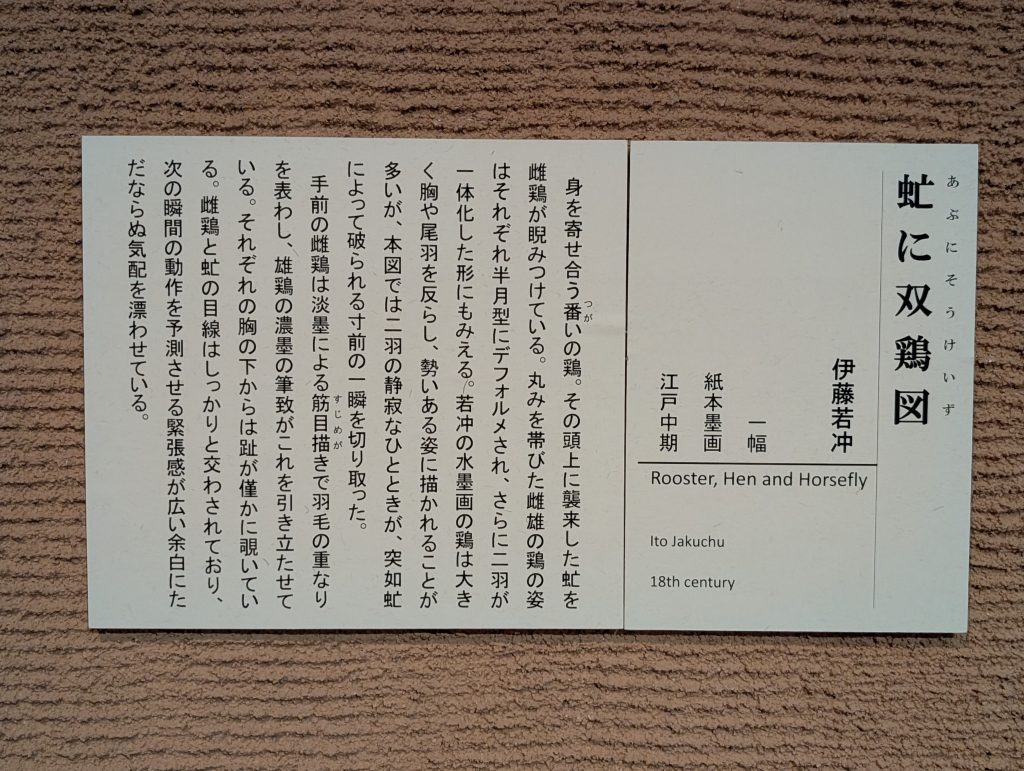 あぶにそうけいず
虻に双鶏図
伊藤若冲
一幅
紙本墨画
江戸中期
Rooster, Hen and Horsefly
Ito Jakuchu
18th century
身を寄せ合う番いの鶏。その頭上に襲来した虻を
つが
雌鶏が睨みつけている。丸みを帯びた雌雄の鶏の姿
はそれぞれ半月型にデフォルメされ、さらに二羽が
一体化した形にもみえる。若冲の水墨画の鶏は大き
く胸や尾羽を反らし、勢いある姿に描かれることが
多いが、本図では二羽の静寂なひとときが、突如虻
によって破られる寸前の一瞬を切り取った。
手前の雌鶏は淡墨による筋目描きで羽毛の重なり
すじめが
を表わし、雄鶏の濃墨の筆致がこれを引き立たせて
いる。それぞれの胸の下からは趾が僅かに覗いてい
る。雌鶏と虻の目線はしっかりと交わされており、
次の瞬間の動作を予測させる緊張感が広い余白にた
だならぬ気配を漂わせている。